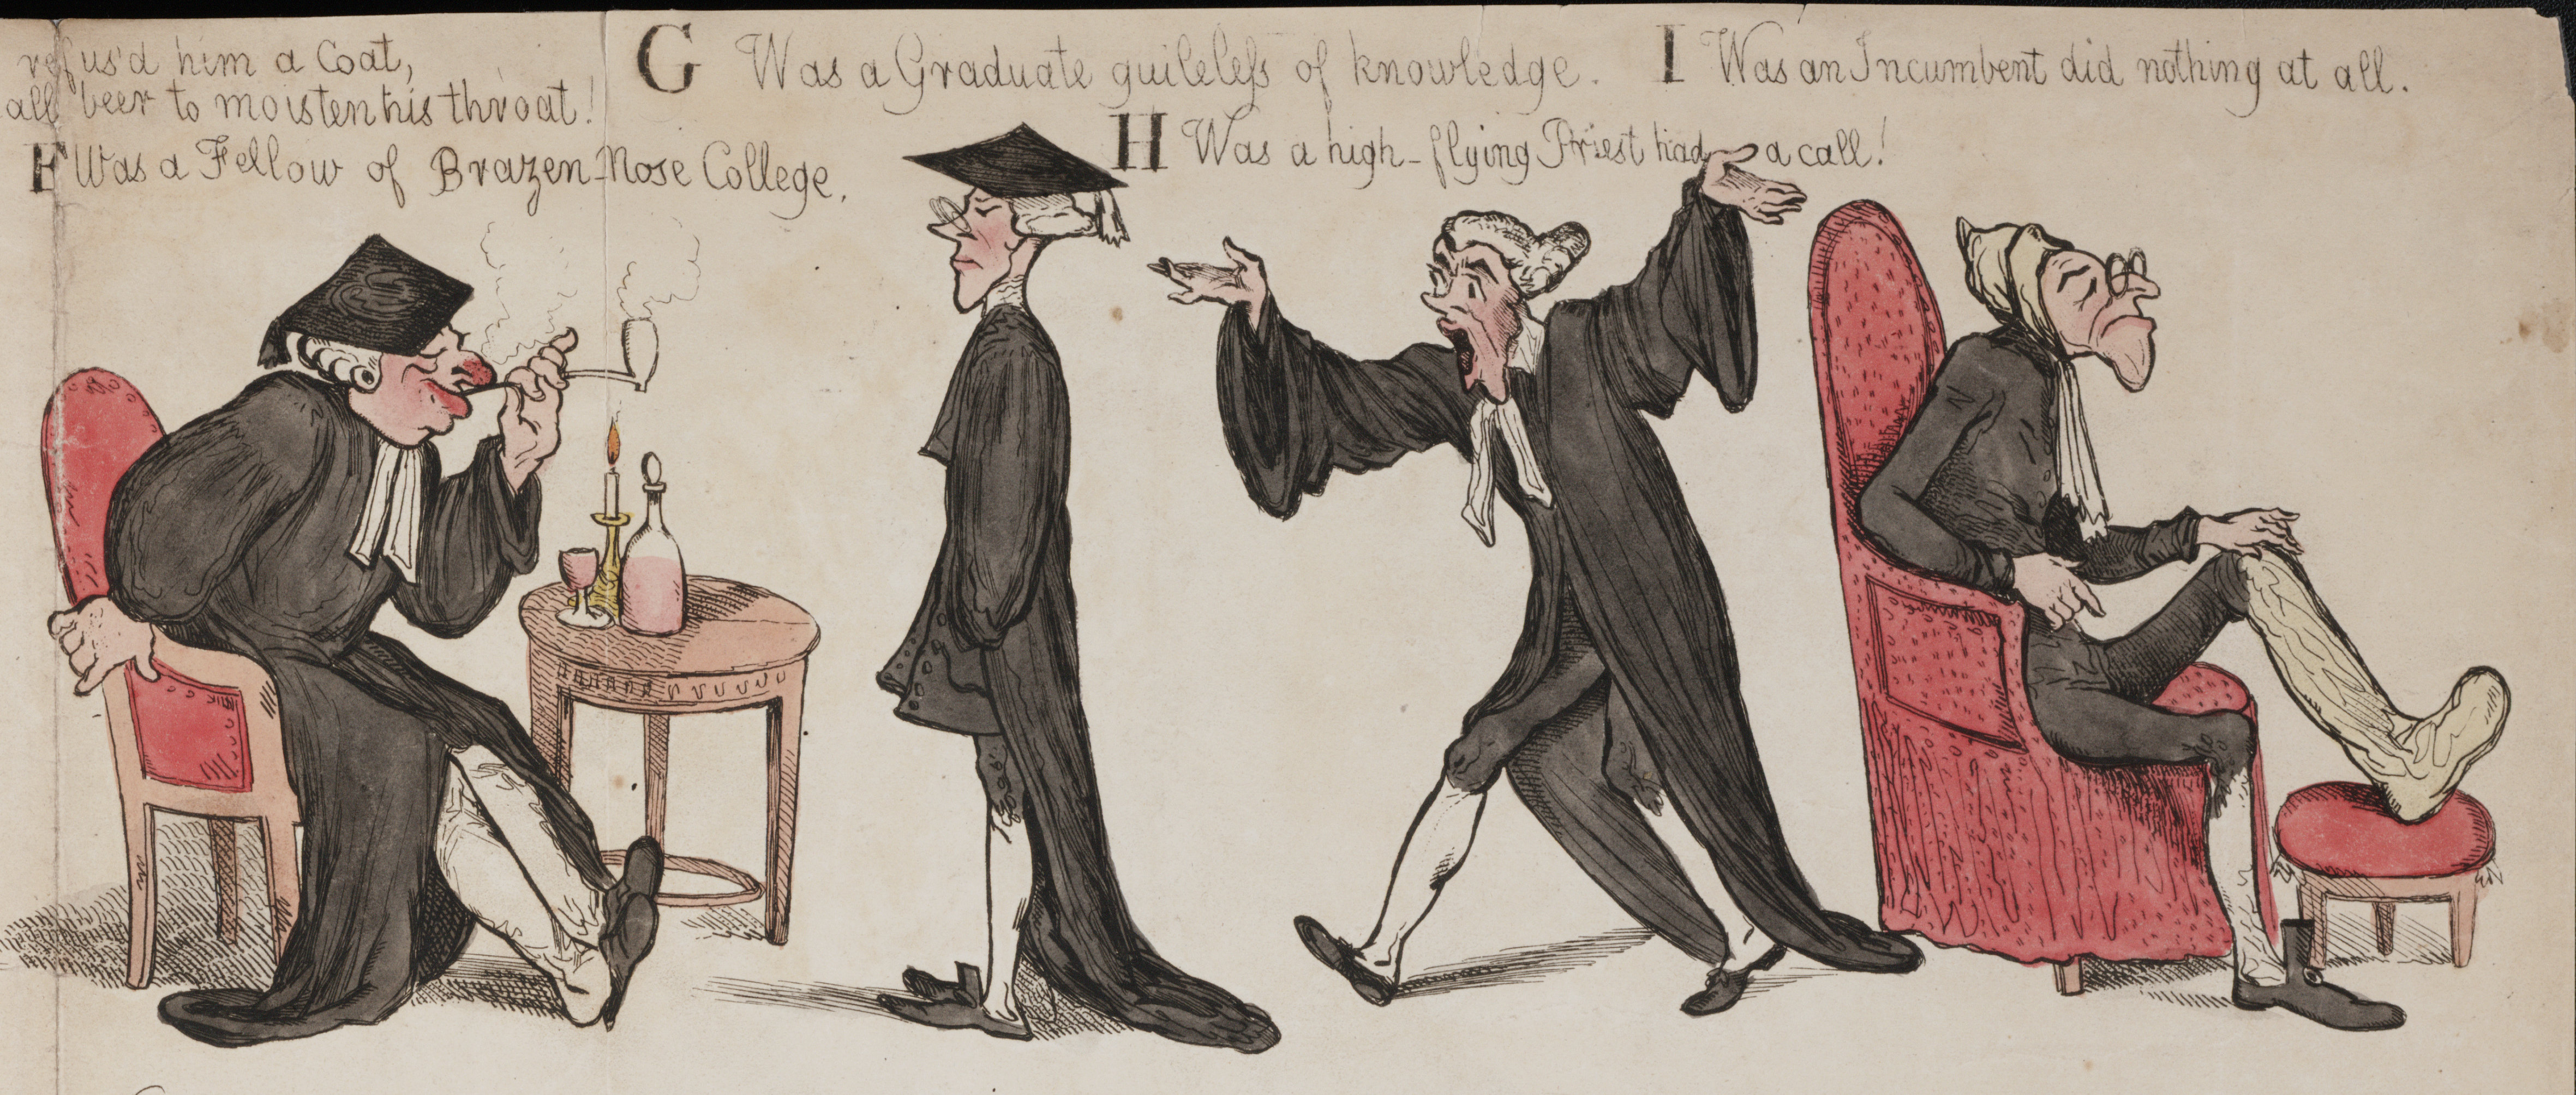 refus'd him a Coat,
all beer to moisten his throat!
F Was a Fellow of Brazen-Nose College,
G Was a Graduate guileleſs of knowledge.
H Was a high-flying Priest had a call!
I Was an Incumbent did nothing at all.